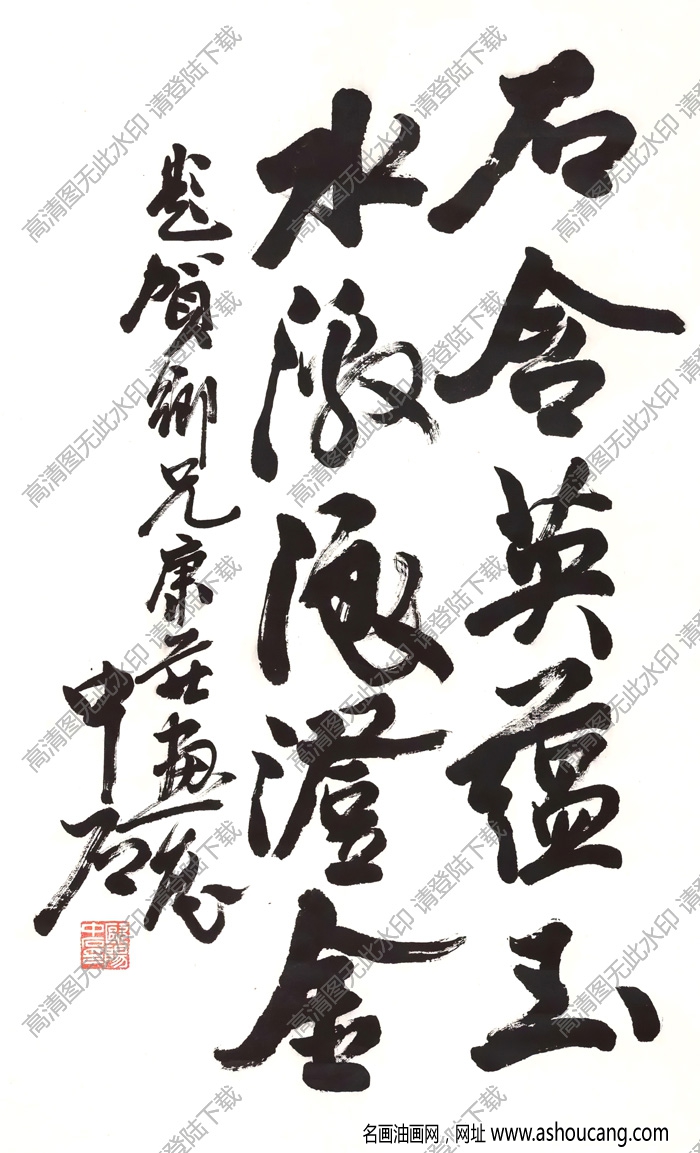 石含英蘊玉
水激浪澄金
題賀鄉兄康莊畫
中石
高清图无此水印 请登陆下载
名画油画网，网址 www.ashoucang.com